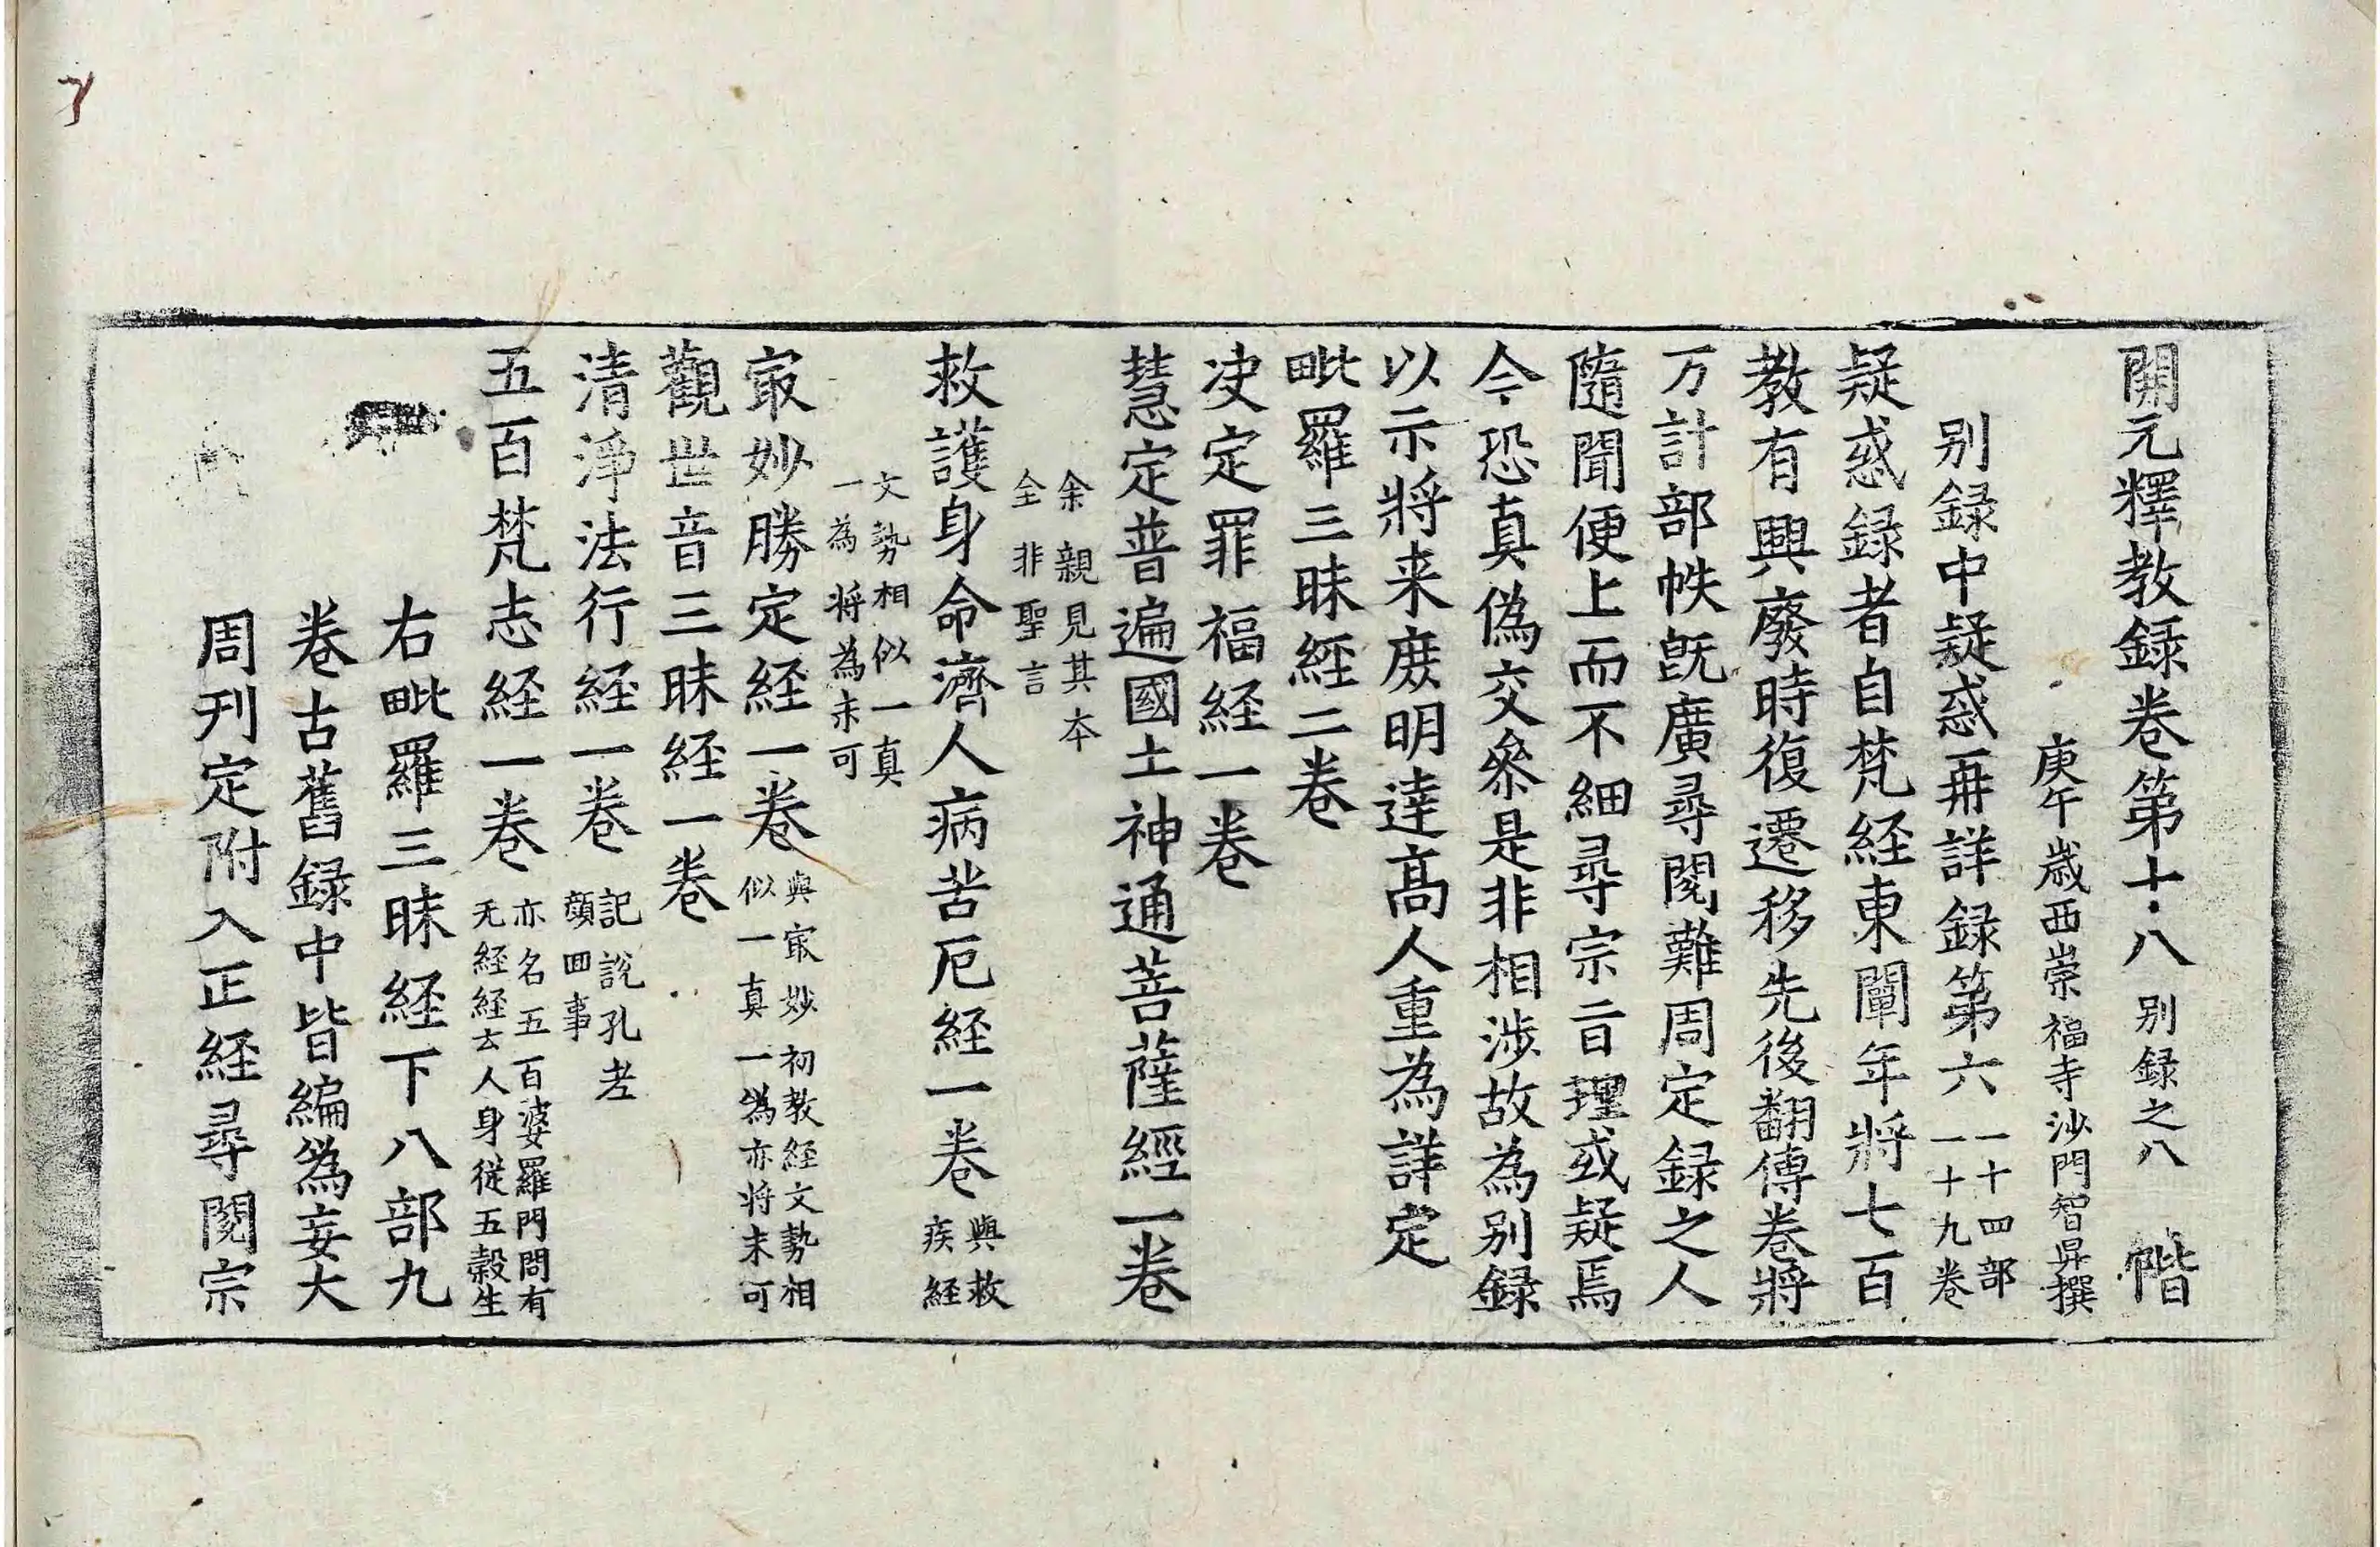 開元釋教録卷第十八 别録之八 階
庚午歲西崇福寺沙門智昇撰
别録中疑惑再詳録第六 一十四部
一十九卷
疑惑録者自梵経東闡年將七百
教有興廢時復遷移先後翻傳卷將
万計部帙既廣尋閱難周定録之人
隨聞便上而不細尋宗旨理或疑焉
今恐真偽交參是非相涉故為别録
以示將来庶明達高人重為詳定
毗羅三昧經二卷
决定罪福経一卷
慧定普遍國土神通菩薩經一卷
余親見其本
全非聖言
救護身命濟人病苦厄経一卷 與救
疾経
文勢相似一真
一為将為未可
冣妙勝定経一卷 與冣妙初教経文勢相
似一真一偽亦将未可
觀世音三昧経一卷
清淨法行経一卷 記說孔老
顔回事
五百梵志経一卷 亦名五百婆羅門問有
无経経去人身從五穀生
右毗羅三昧経下八部九
卷古舊録中皆編爲妄大
周刊定附入正経尋閱宗